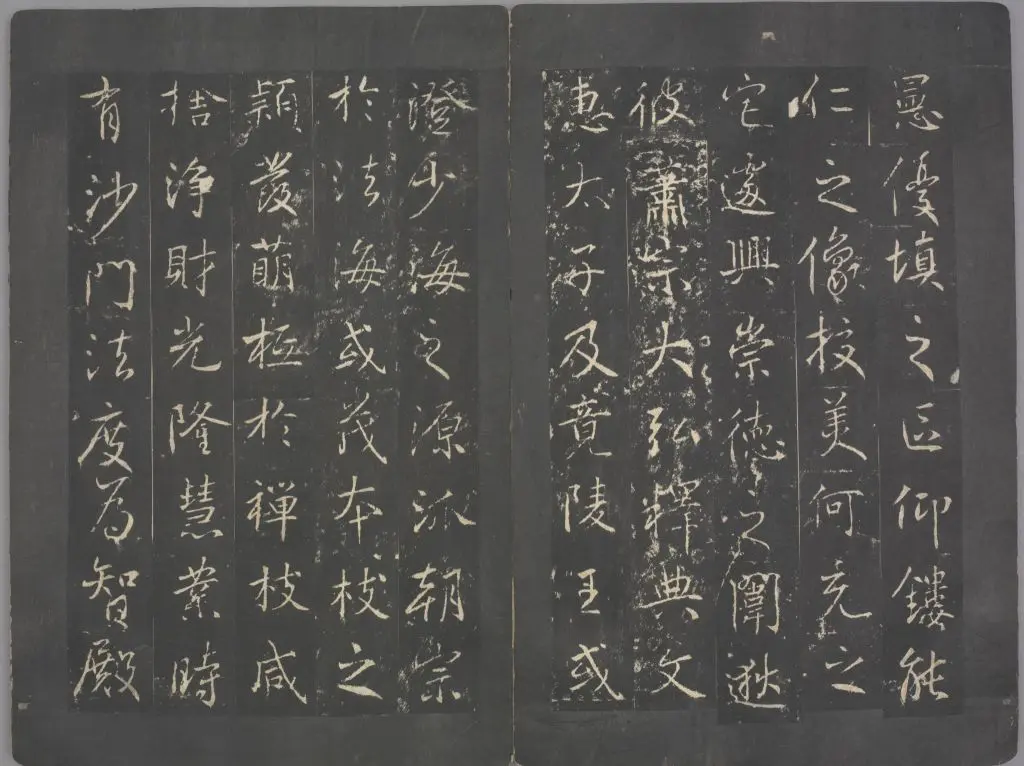 優填之區仰鏤能
仁之像校美何充之
宅遽興崇德之闈逖
彼蕭宗大弘釋典文
惠太子及竟陵王或
澄少海之源派朝宗
於法海或茂本枝之
穎發萌柢於禪枝咸
捨淨財光隆慧業時
有沙門法度為智殿